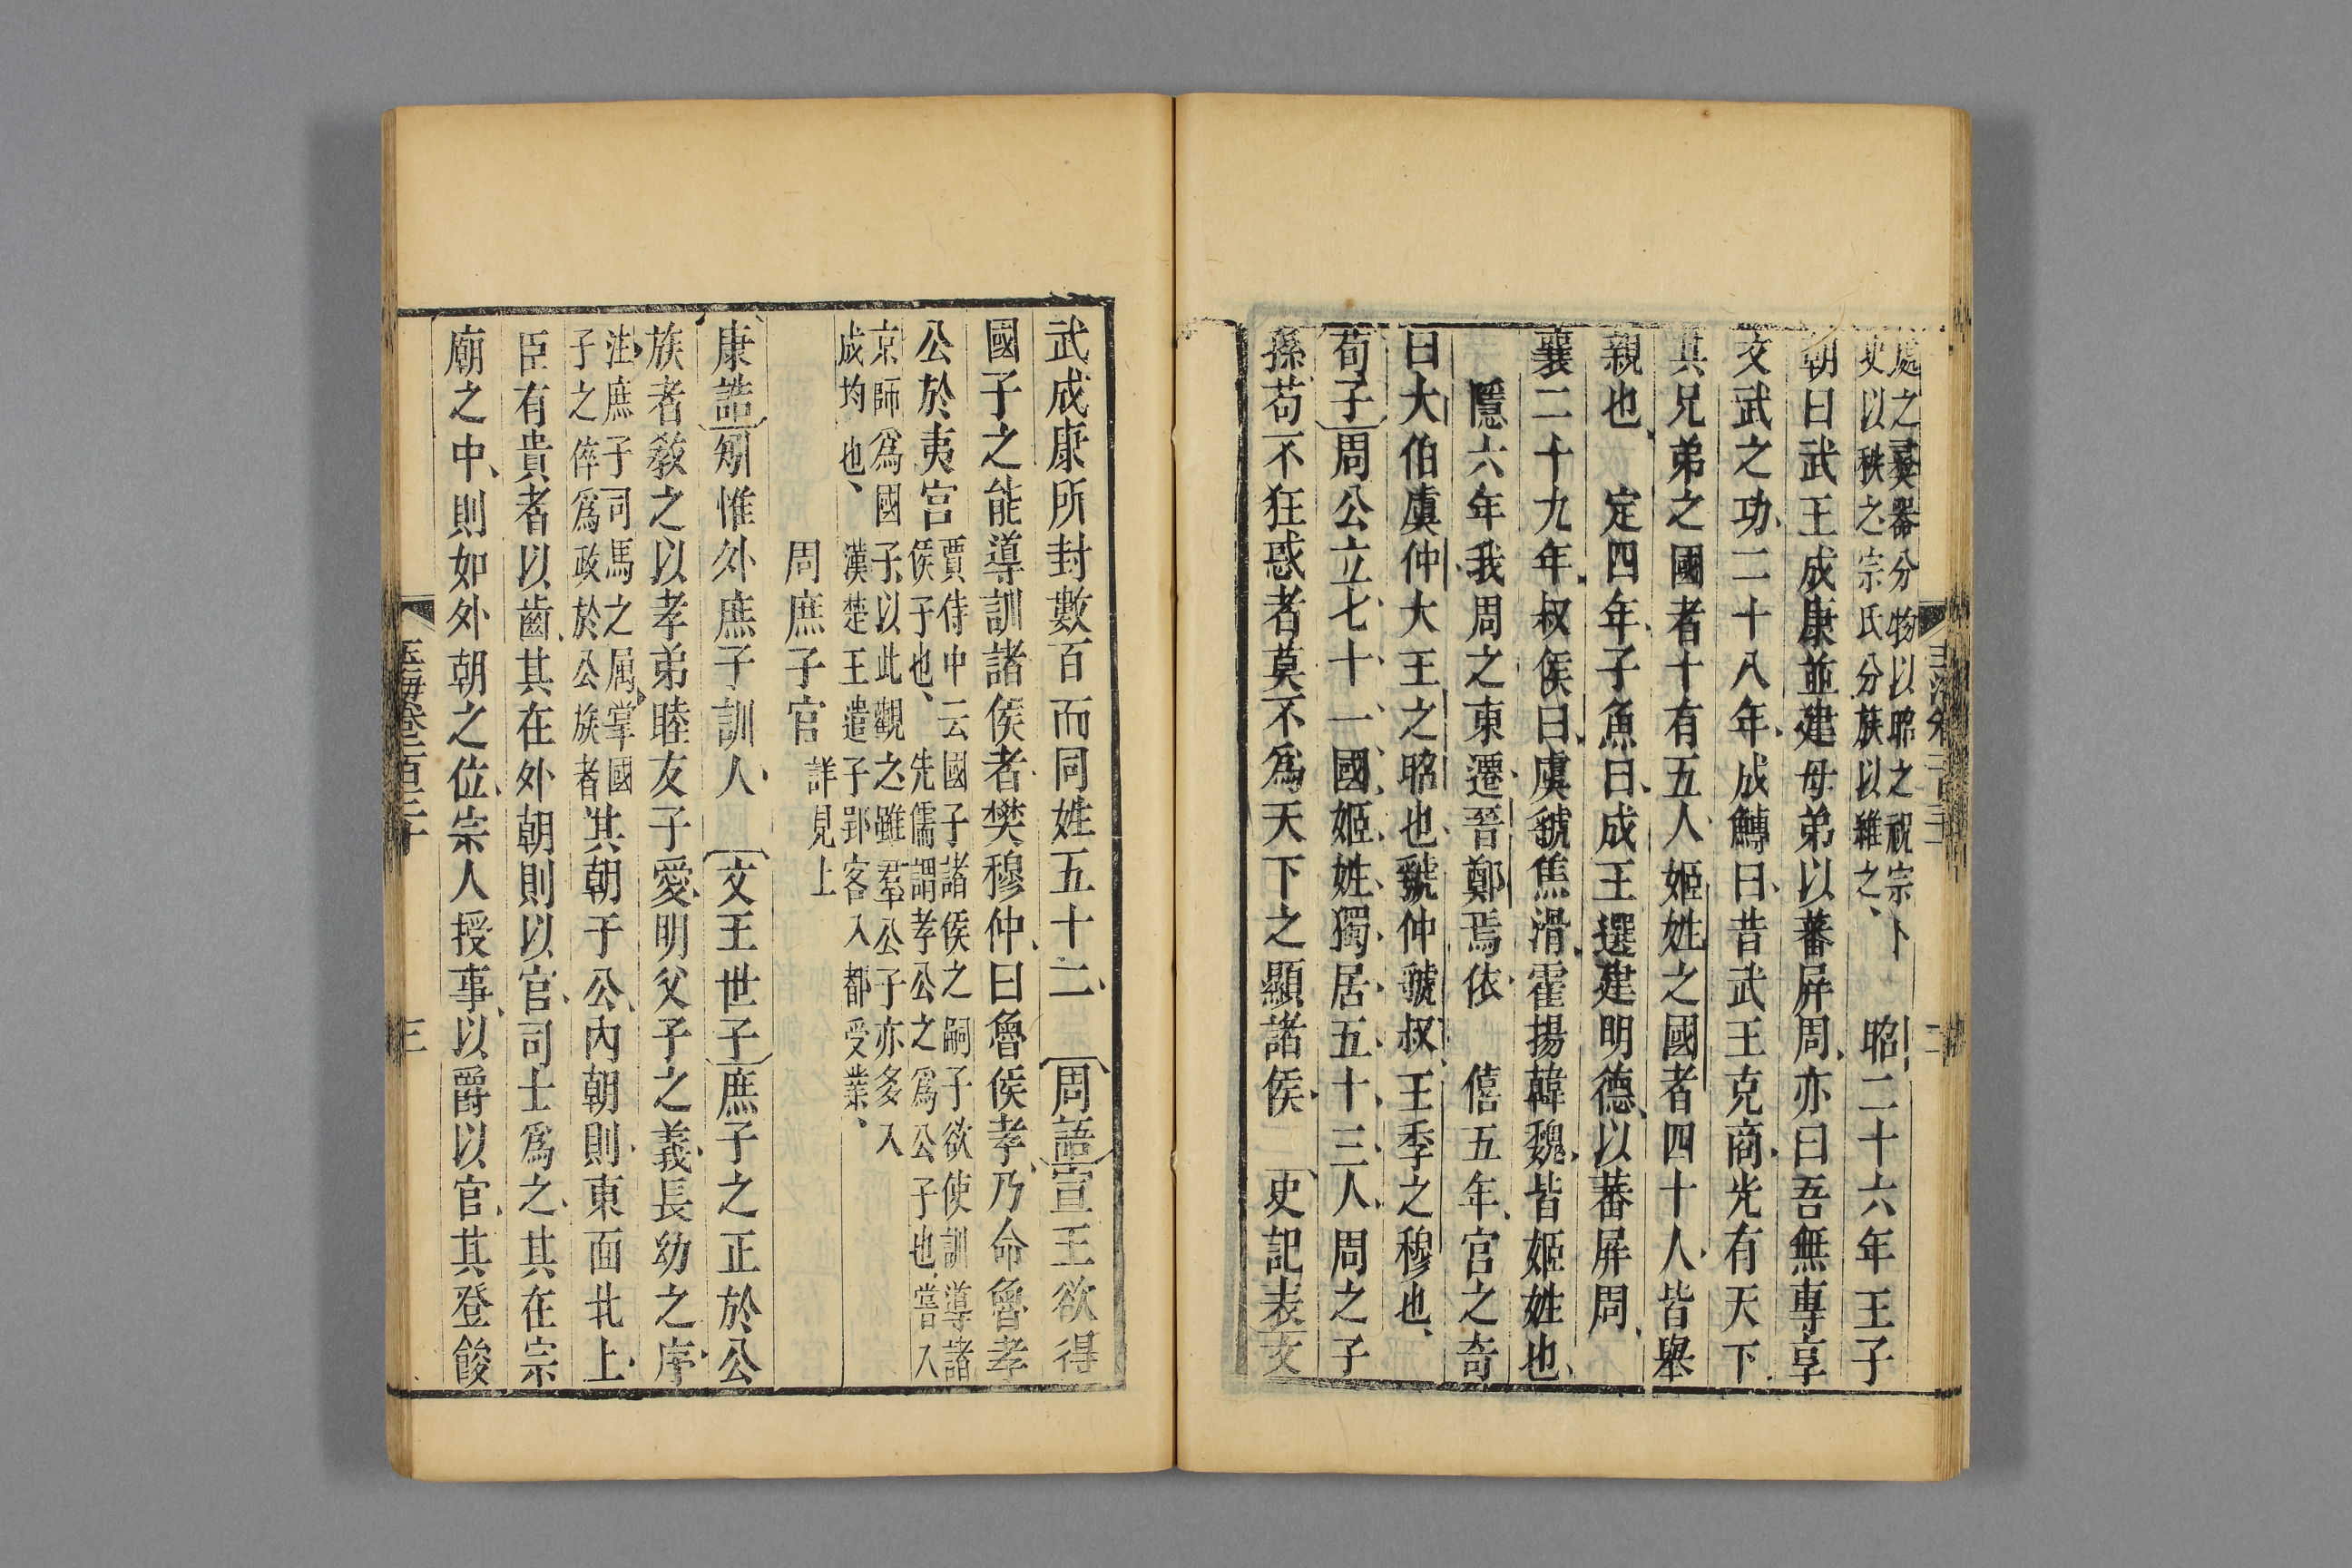 處之彞器分物以昭之祝宗卜
史以秩之宗氏分族以維之、昭二十六年王子
朝曰武王成康並建母弟以蕃屏周亦曰吾無專享
文武之功二十八年成鱄曰昔武王克商光有天下
其兄弟之國者十有五人姬姓之國者四十人皆舉
親也 定四年子魚曰成王選建明德以蕃屏周
襄二十九年叔侯曰虞虢焦滑霍揚韓魏皆姬姓也
隱六年我周之東遷晉鄭焉依 僖五年宮之奇
曰大伯虞仲大王之昭也虢仲虢叔王季之穆也
荀子周公立七十一國姬姓獨居五十三人周之子
孫苟不狂惑者莫不爲天下之顯諸侯 史記表文
二
武成康所封數百而同姓五十二 周語宣王欲得
國子之能導訓諸侯者樊穆仲曰魯侯孝乃命魯孝
公於夷宮賈侍中云國子諸侯之嗣子欲使訓導諸
侯子也、先儒謂孝公之爲公子也嘗入
京師爲國子以此觀之雖羣公子亦多入
成均也、漢楚王遣子郢客入都受業、
周庶子官 詳見上
康誥矧惟外庶子訓人 文王世子庶子之正於公
族者教之以孝弟睦友子愛明父子之義長幼之序
注庶子司馬之屬掌國
子之倅爲政於公族者其朝于公內朝則東面北上
臣有貴者以齒其在外朝則以官司士爲之其在宗
廟之中則如外朝之位宗人授事以爵以官其登餕
玉海卷一百三十
三